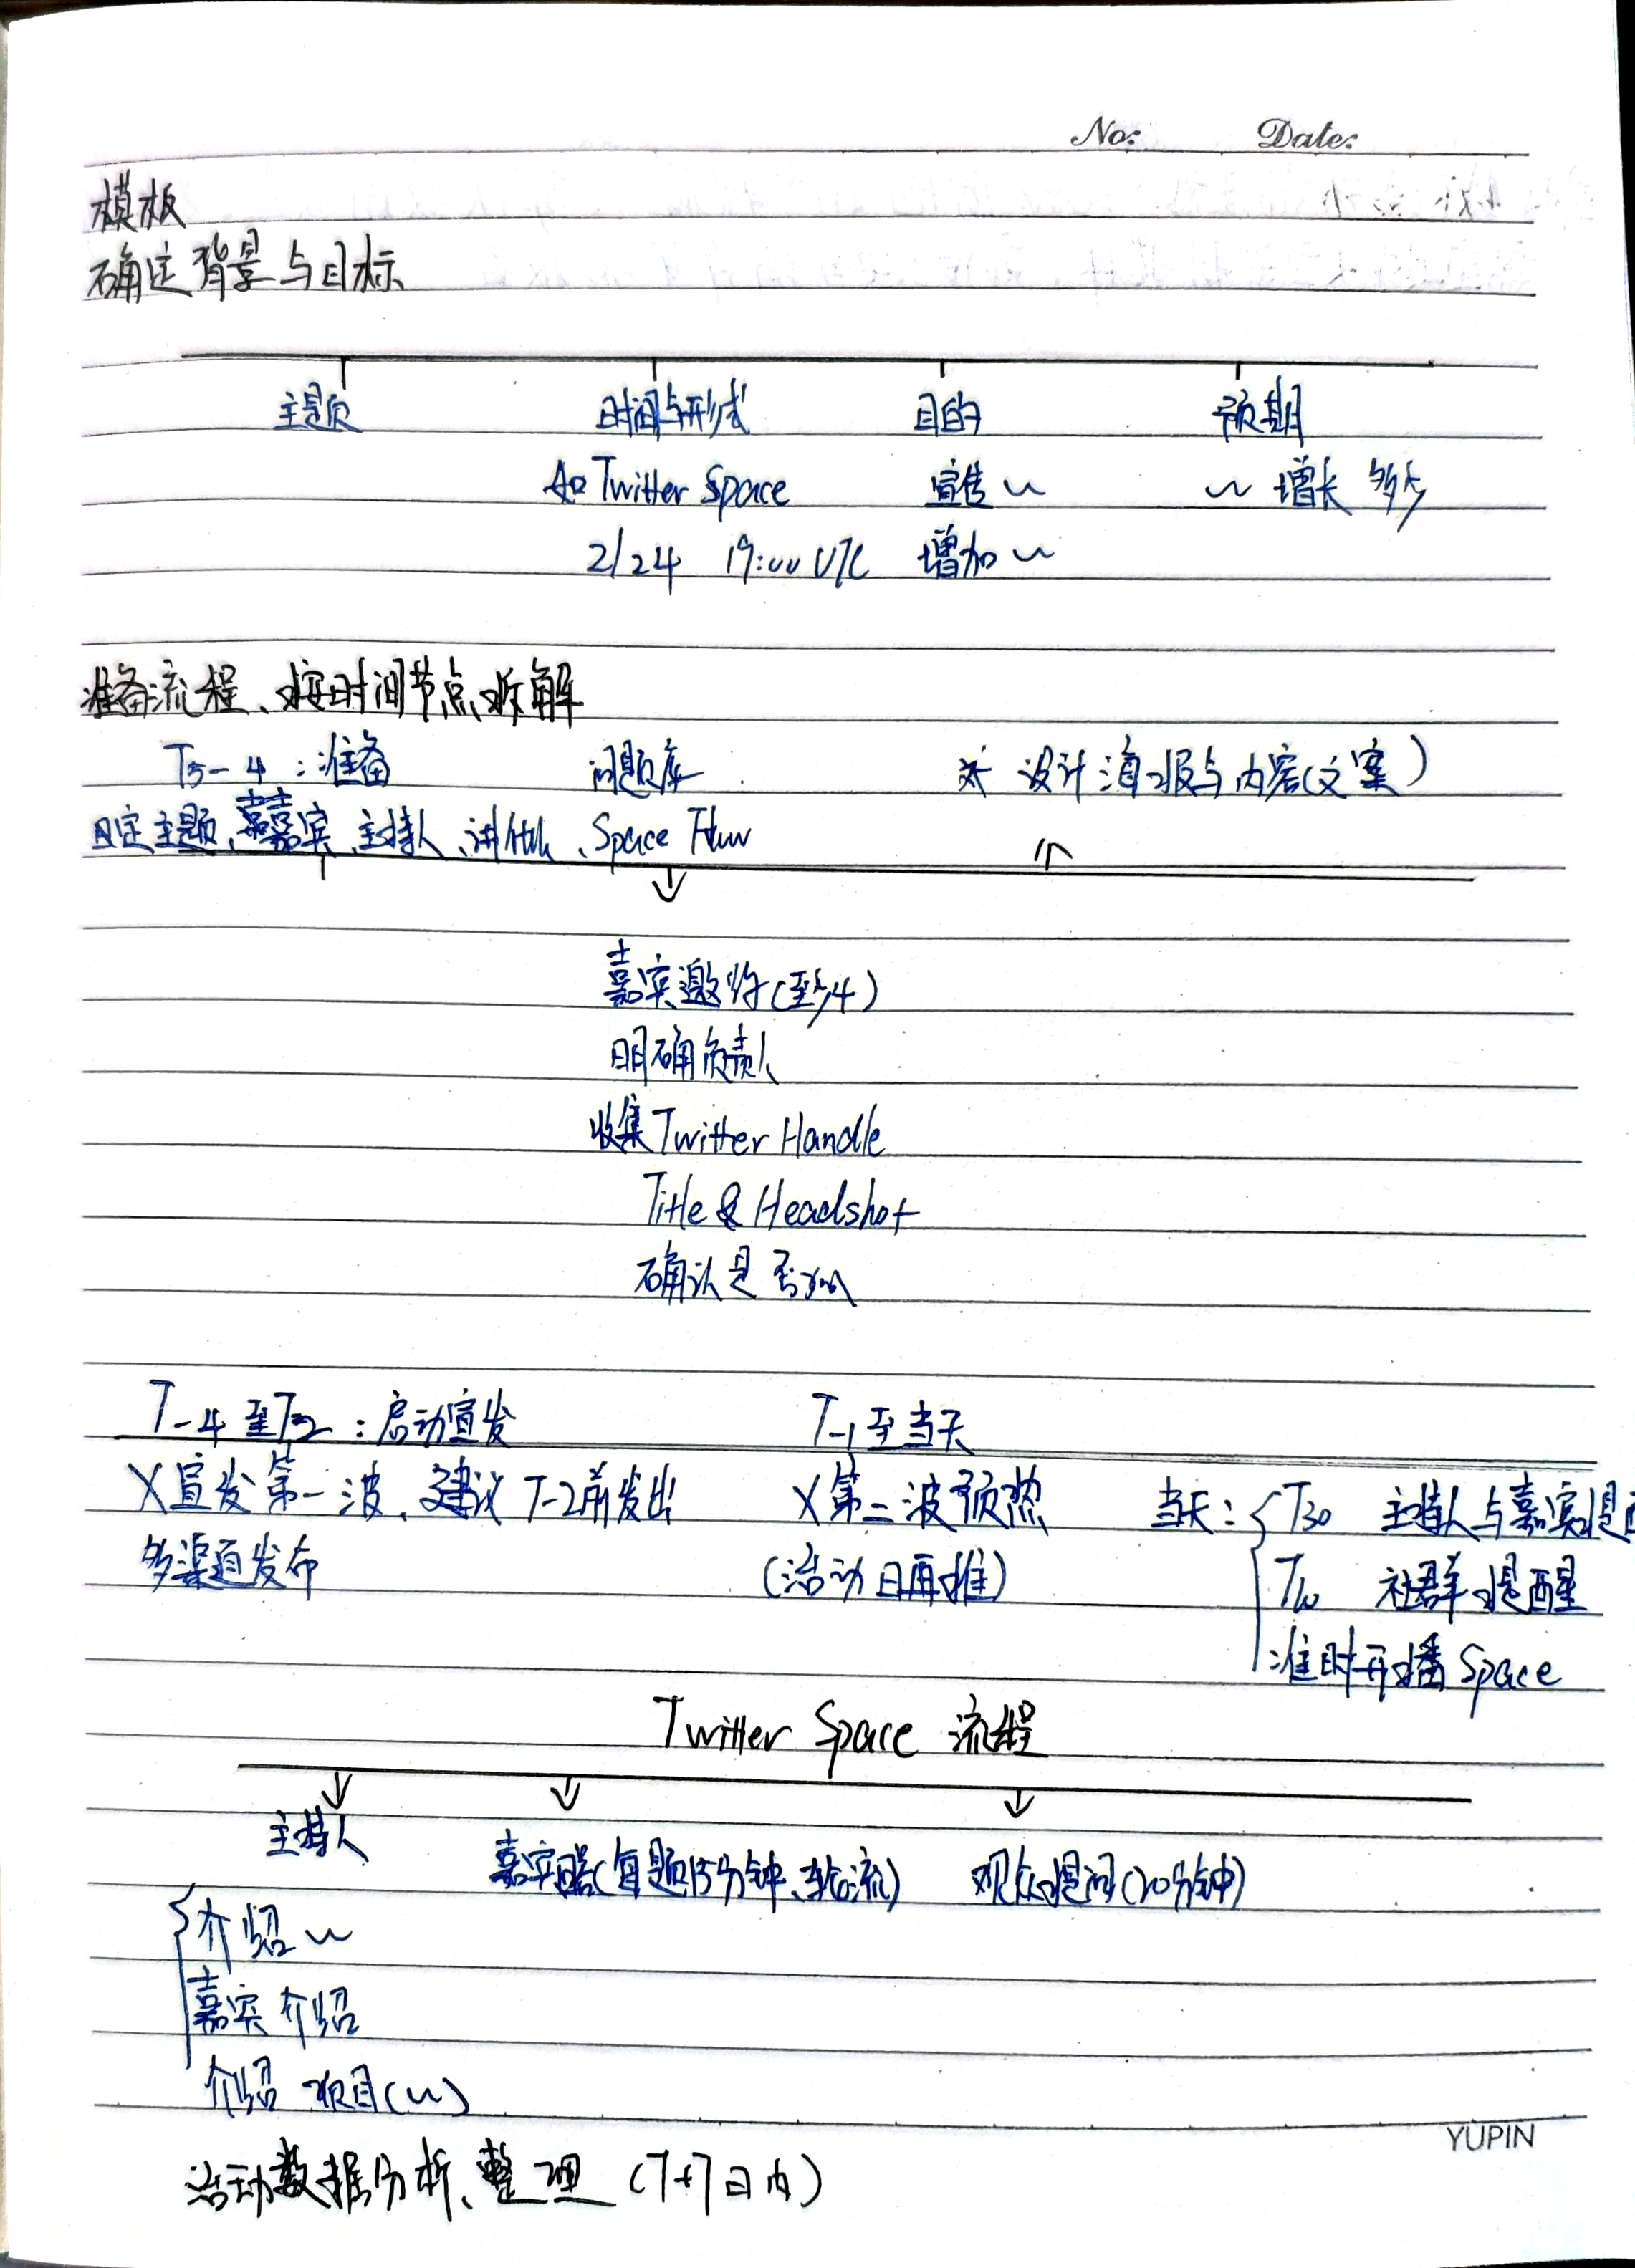 No: Date:
模板
确定背景与目标
主题 时间与形式 目的 预期
如 Twitter Space 宣传~ ~增长多少
2/24 19:00 UTC 增加~
准备流程、按时间节点拆解
T5-4：准备 问题库 设计海报与内容(文案)
确定主题、嘉宾、主持人、 、Space Flow
嘉宾邀约(至少4)
明确负责人
收集Twitter Handle
Title & Headshot
确认是否
T-4至T-2：启动宣发 T-1至当天
X宣发第一波、建议T-2前发出 X第二波预热 当天： T30 主持人与嘉宾提醒
多渠道发布 (活动日再推) T10 社群提醒
准时开播Space
Twitter Space 流程
主持人
嘉宾 (每题15分钟、轮流) 观众提问(20分钟)
介绍~
嘉宾介绍
介绍项目(~)
YUPIN
活动数据分析、整理(T+7日内)